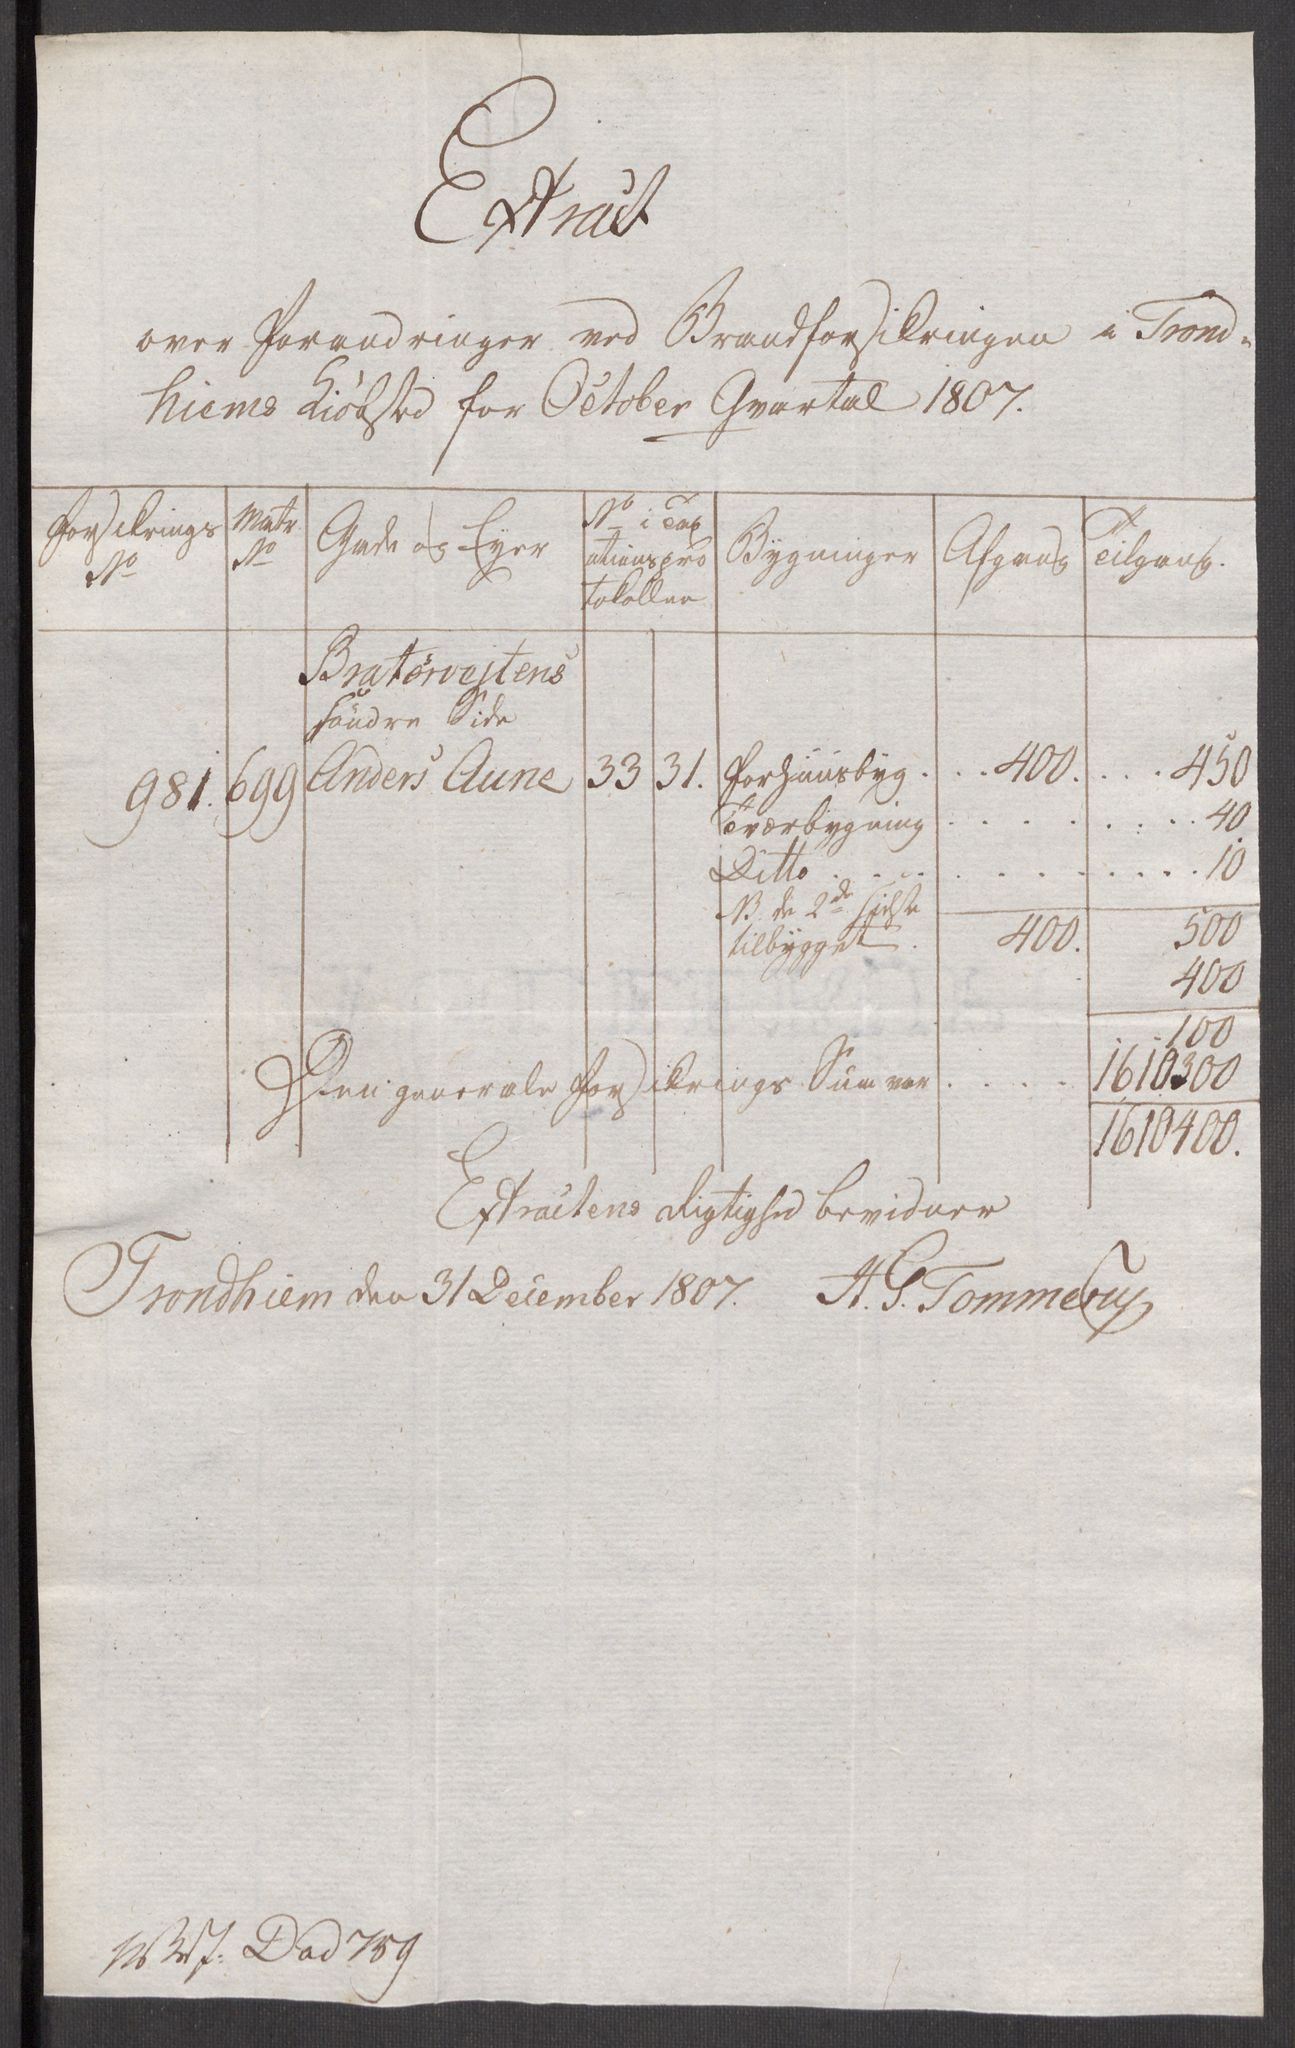 Extract
over Forandringer ved Brandforsikringen i Trond-
hiems Kiøbsted for October Qvartal 1807.
Forsikrings No | Matr No | Gade og Eyer | No i Taxationsprotokollen | Bygninger | Afgang | Tilgang.
Bratørvejtens
søndre Side
981. 699 Anders Aune 33 31. Forhuusbyg . . . 400. . . . 450
Tværbygning . . . . . . . . 40
Ditto . . . . . . . . . . . . 10
NB de 2de sidste
tilbygget . 400. 500
400
100
Den generale Forsikrings Sum var . . . . 1610300
1610400.
Extractens Rigtighed bevidner
Trondhiem den 31 December 1807. A. G. Tommerup
Dod 759